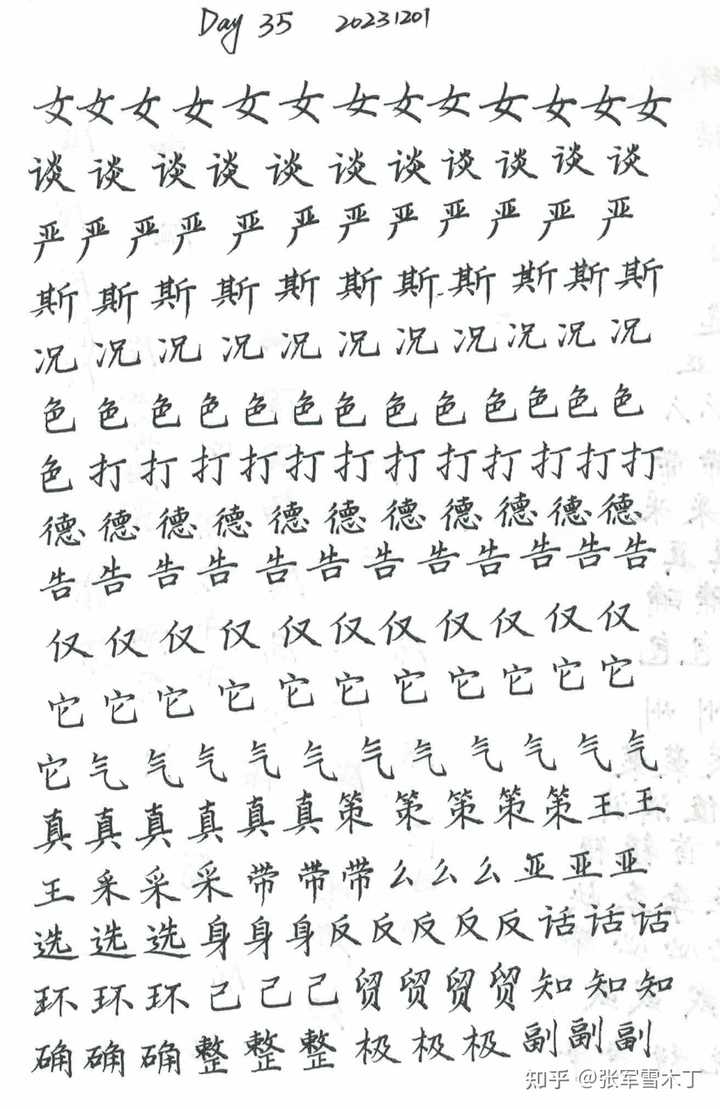 Day 35 20231201
女女女女女女女女女女女女女
谈谈谈谈谈谈谈谈谈谈谈
严严严严严严严严严严严严
斯斯斯斯斯斯斯斯斯斯斯
况况况况况况况况况况况
色色色色色色色色色色色色色
色打打打打打打打打打打打打
德德德德德德德德德德德
告告告告告告告告告告告告
仅仅仅仅仅仅仅仅仅仅仅
它它它它它它它它它它它
它气气气气气气气气气气气
真真真真真真策策策策策王王
王采采采带带带么么么亚亚亚
选选选身身身反反反反反话话话
环环环己己己贸贸贸贸知知知
确确确整整整极极极副副副
知乎 @张军雪木丁